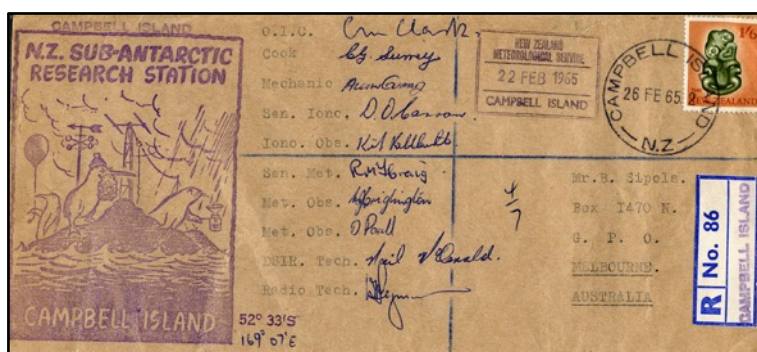 CAMPBELL ISLAND
N.Z. SUB-ANTARCTIC
RESEARCH STATION
CAMPBELL ISLAND
52° 33'S
169° 07'E
O.I.C.
Cook
Mechanic
Sen. Ionc.
Iono. Obs.
Sen. Met. R.M. Craig
Met. Obs.
Met. Obs.
DSIR. Tech. Neil
Radio Tech.
4/7
NEW ZEALAND
METEOROLOGICAL SERVICE
22 FEB 1965
CAMPBELL ISLAND
CAMPBELL ISLAND
26 FE 65
N.Z
1/6
NEW ZEALAND
Mr.B. Sipols.
Box 1470 N.
G. P. O.
MELBOURNE.
AUSTRALIA
R No. 86
CAMPBELL ISLAND